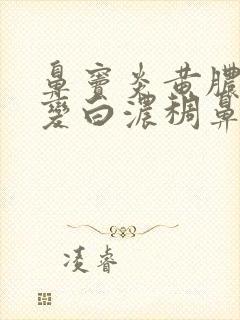 鼻窦炎黄脓
变白浓稠鼻
凌睿